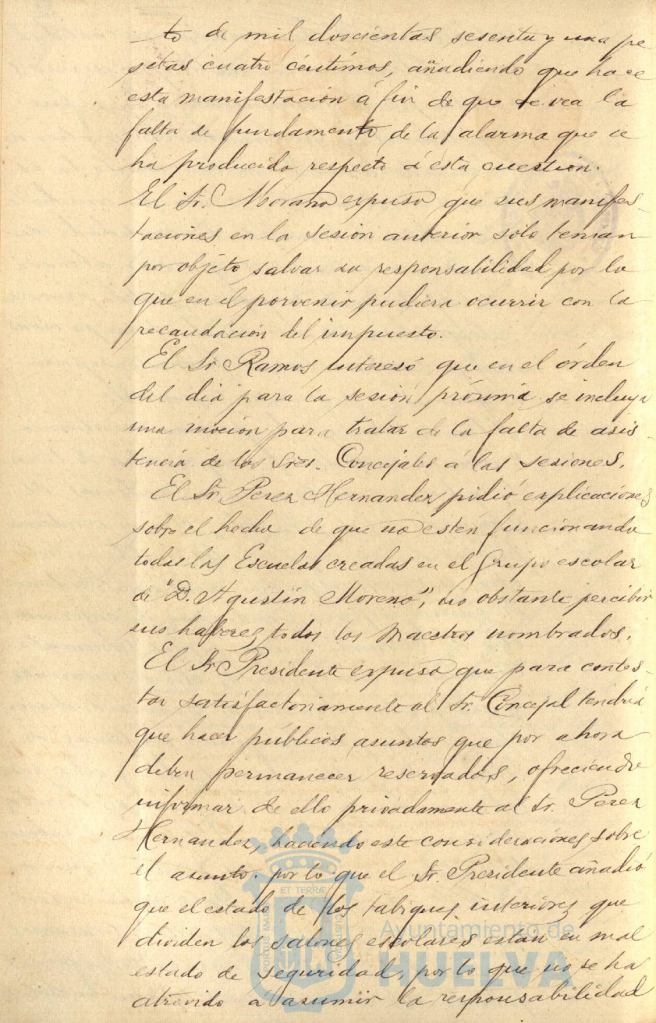 to de mil doscientas sesenta y una pe
setas cuatro céntimos, añadiendo que hace
esta manifestación á fin de que se vea la
falta de fundamento de la alarma que se
ha producido respecto á esta cuestión.
El Sr. Morano expuso que sus manifes-
taciones en la sesión anterior solo tenian
por objeto salvar su responsabilidad por lo
que en el porvenir pudiera ocurrir con la
recaudación del impuesto.
El Sr Ramos interesó que en el órden
del dia para la sesión próxima se incluya
una moción para tratar de la falta de asis-
tencia de los Sres. Concejales á las sesiones.
El Sr Perez Hernandez pidió explicaciones
sobre el hecho de que no esten funcionando
todas las Escuelas creadas en el Grupo escolar
de "D. Agustín Moreno", no obstante percibir
sus haberes todos los Maestros nombrados.
El Sr Presidente expuso que para contes-
tar satisfactoriamente al Sr. Concejal tendria
que hacer públicos asuntos que por ahora
deben permanecer reservados, ofreciendo
informar de ello privadamente al Sr. Perez
Hernandez, haciendo este consideraciones sobre
el asunto. por lo que el Sr. Presidente añadió
que el estado de los tabiques interiores que
dividen los salones escolares estan en mal
estado de seguridad, por lo que no se ha
atrevido a asumir la responsabilidad
ET TERRÆ
Ayuntamiento de
HUELVA